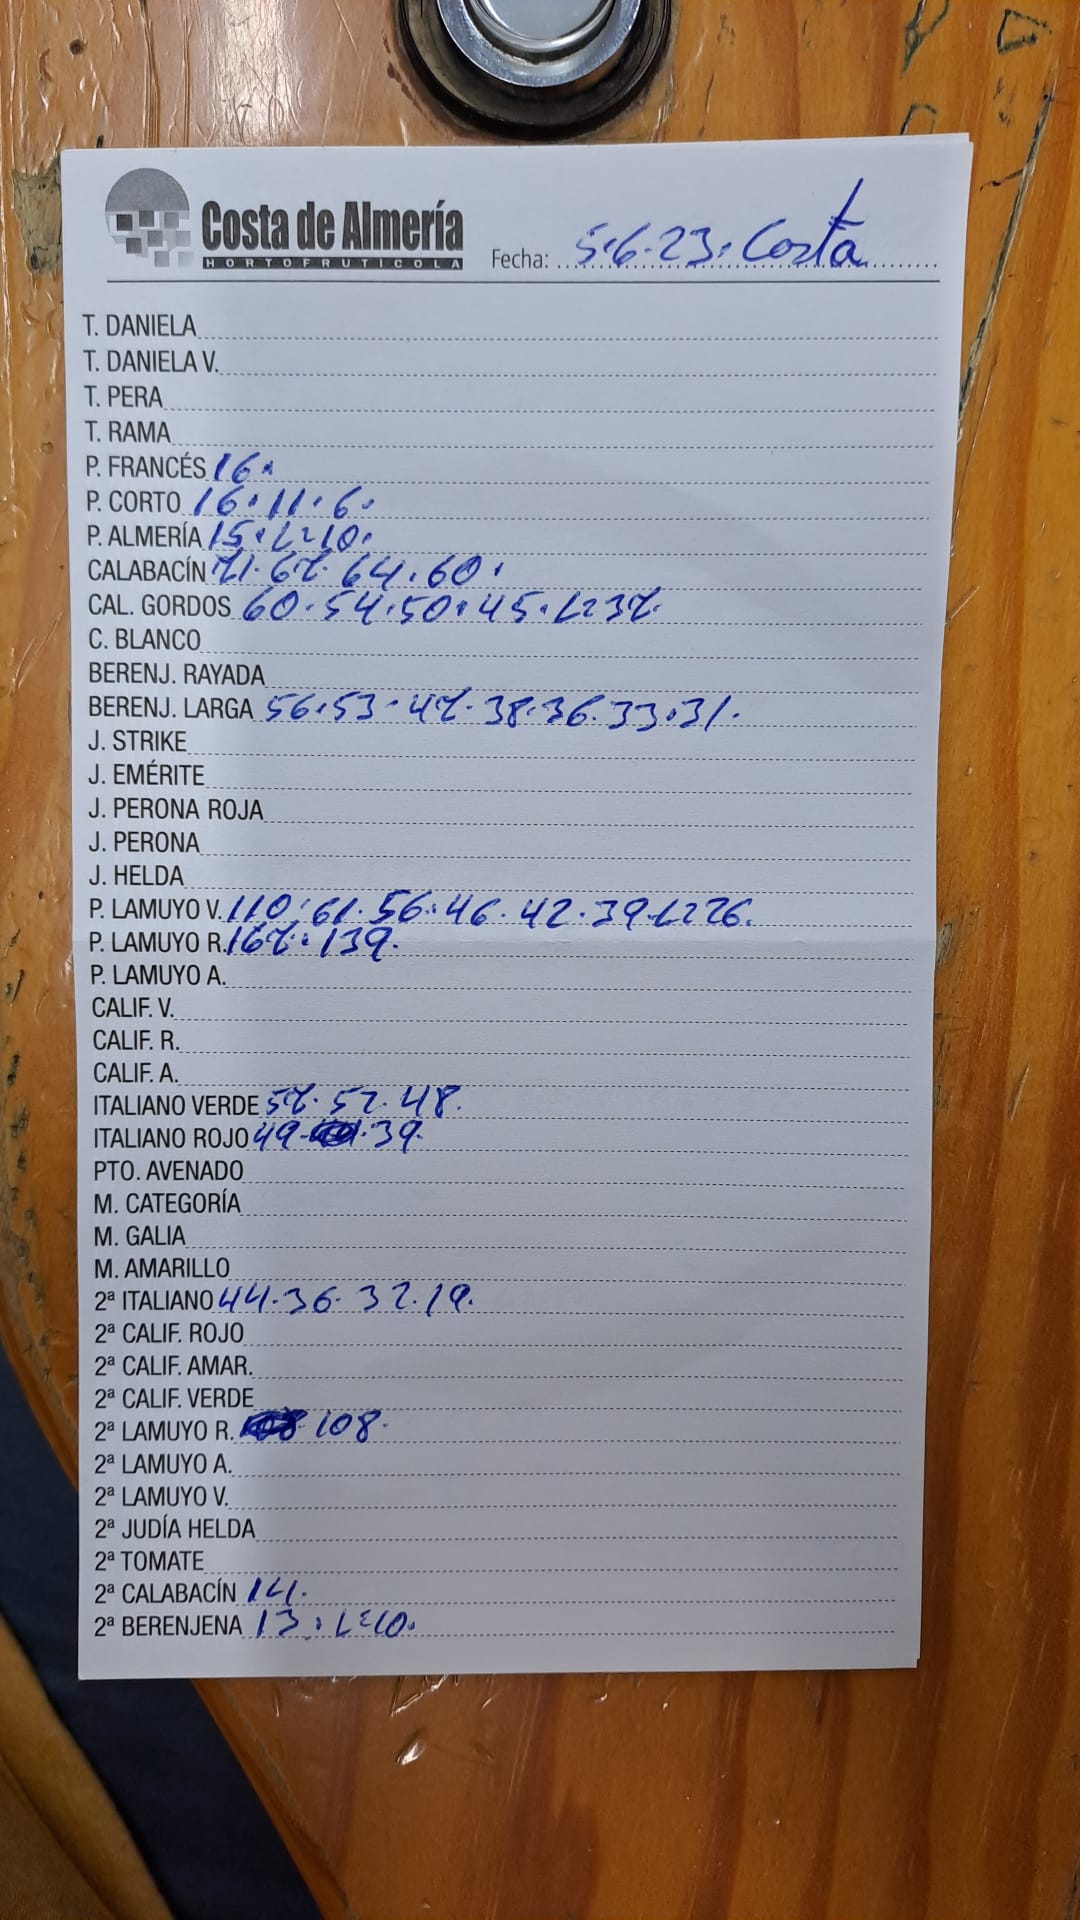 Costa de Almería
HORTOFRUTICOLA
Fecha: 5.6.23. Costa
T. DANIELA
T. DANIELA V.
T. PERA
T. RAMA
P. FRANCÉS 16.
P. CORTO 16.11.6.
P. ALMERÍA 15.L=10.
CALABACÍN 71.67.64.60.
CAL. GORDOS 60.54.50.45.L=37.
C. BLANCO
BERENJ. RAYADA
BERENJ. LARGA 56.53.47.38.36.33.31.
J. STRIKE
J. EMÉRITE
J. PERONA ROJA
J. PERONA
J. HELDA
P. LAMUYO V. 110.61.56.46.42.39.L=26.
P. LAMUYO R. 167.139.
P. LAMUYO A.
CALIF. V.
CALIF. R.
CALIF. A.
ITALIANO VERDE 57.52.48.
ITALIANO ROJO 49.39.
PTO. AVENADO
M. CATEGORÍA
M. GALIA
M. AMARILLO
2ª ITALIANO 44.36.32.19.
2ª CALIF. ROJO
2ª CALIF. AMAR.
2ª CALIF. VERDE
2ª LAMUYO R. 108.
2ª LAMUYO A.
2ª LAMUYO V.
2ª JUDÍA HELDA
2ª TOMATE
2ª CALABACÍN 14.
2ª BERENJENA 13.L=10.